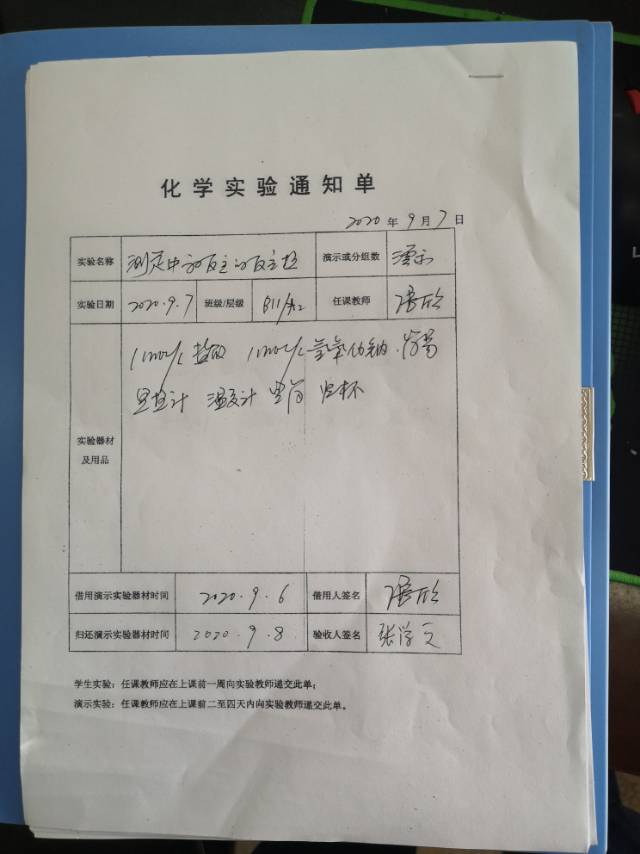 化学实验通知单
2020年9月7日
实验名称 测定中和反应的反应热 演示或分组数 演示
实验日期 2020.9.7 班级/层级 B11/A2 任课教师
实验器材及用品 1mol/L 盐酸 1mol/L 氢氧化钠 简易
量热计 温度计 量筒 烧杯
借用演示实验器材时间 2020.9.6 借用人签名
归还演示实验器材时间 2020.9.8 验收人签名
学生实验:任课教师应在上课前一周向实验教师递交此单;
演示实验:任课教师应在上课前二至四天内向实验教师递交此单。